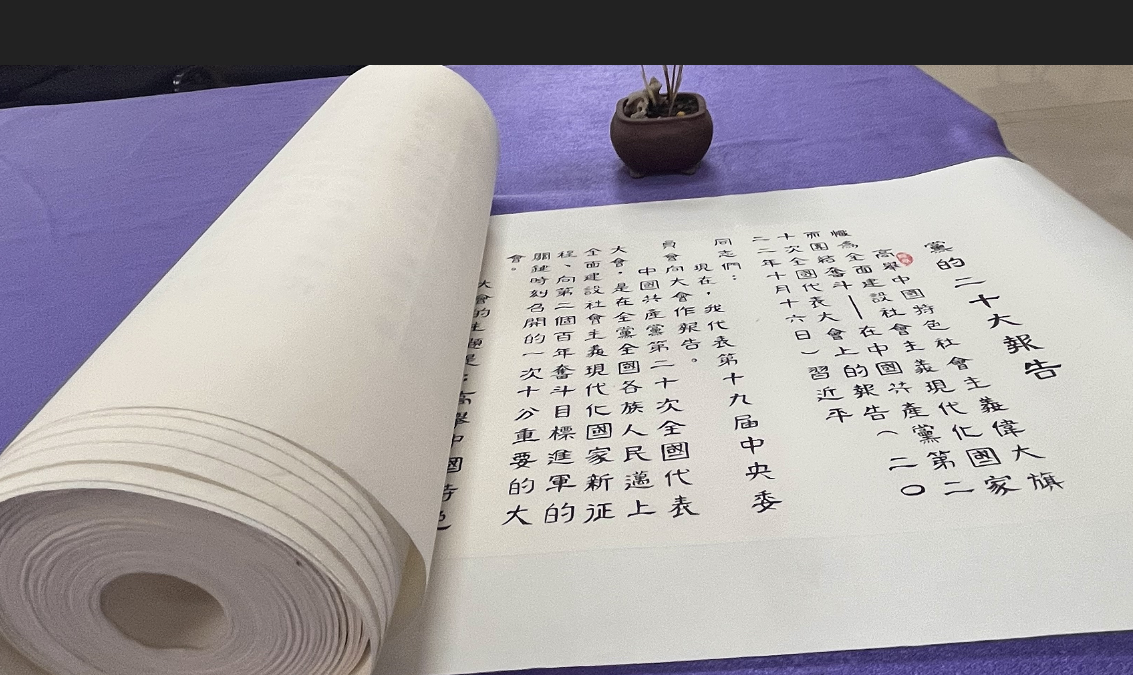 黨的二十大報告
高舉中國特色社會主義偉大旗
幟為全面建設社會主義現代化國家
而團結奮斗——在中國共產黨第二
十次全國代表大會上的報告（二〇
二二年十月十六日）習近平
同志們：
現在，我代表第十九届中央委
員會向大會作報告。
中國共產黨第二十次全國代表
大會，是在全黨全國各族人民邁上
全面建設社會主義現代化國家新征
程、向第二個百年奮斗目標進軍的
關鍵時刻召開的一次十分重要的大
會。
大會的主題是：高舉中國特色